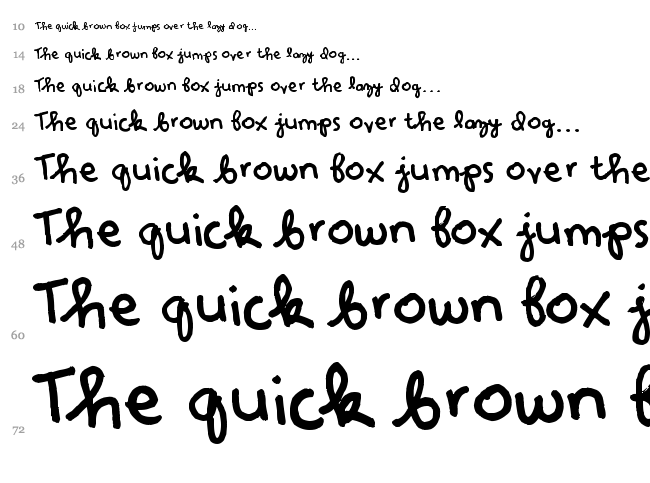 10 The quick brown fox jumps over the lazy dog...
14 The quick brown fox jumps over the lazy dog...
18 The quick brown fox jumps over the lazy dog...
24 The quick brown fox jumps over the lazy dog...
36 The quick brown fox jumps over the
48 The quick brown fox jumps
60 The quick brown fox j
72 The quick brown